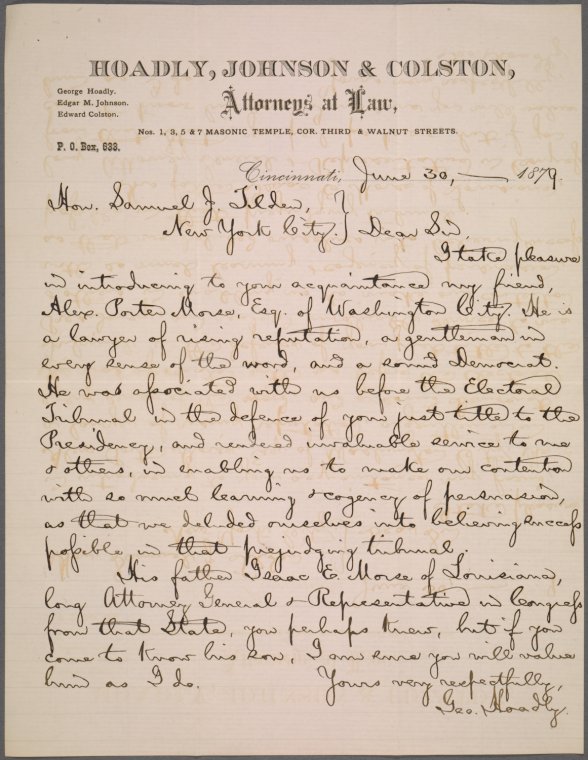 HOADLY, JOHNSON & COLSTON,
Attorneys at Law,
George Hoadly.
Edgar M. Johnson.
Edward Colston.
Nos. 1, 3, 5 & 7 MASONIC TEMPLE, COR. THIRD & WALNUT STREETS.
P. O. Box, 633.
Cincinnati, June 30, — 1879.
Hon. Samuel J. Tilden,
New York City. } Dear Sir,
I take pleasure
in introducing to your acquaintance my friend,
Alex. Porter Morse, Esq. of Washington City. He is
a lawyer of rising reputation, a gentleman in
every sense of the word, and a sound Democrat.
He was associated with us before the Electoral
Tribunal in the defence of your just title to the
Presidency, and rendered invaluable service to me
& others, in enabling us to make our contention
with so much learning & cogency of persuasion,
as that we deluded ourselves into believing success
possible in that prejudging tribunal.
His father Isaac E. Morse of Louisiana,
long Attorney General & Representative in Congress
from that State, you perhaps knew, but if you
come to know his son, I am sure you will value
him as I do. Yours very respectfully,
Geo. Hoadly.